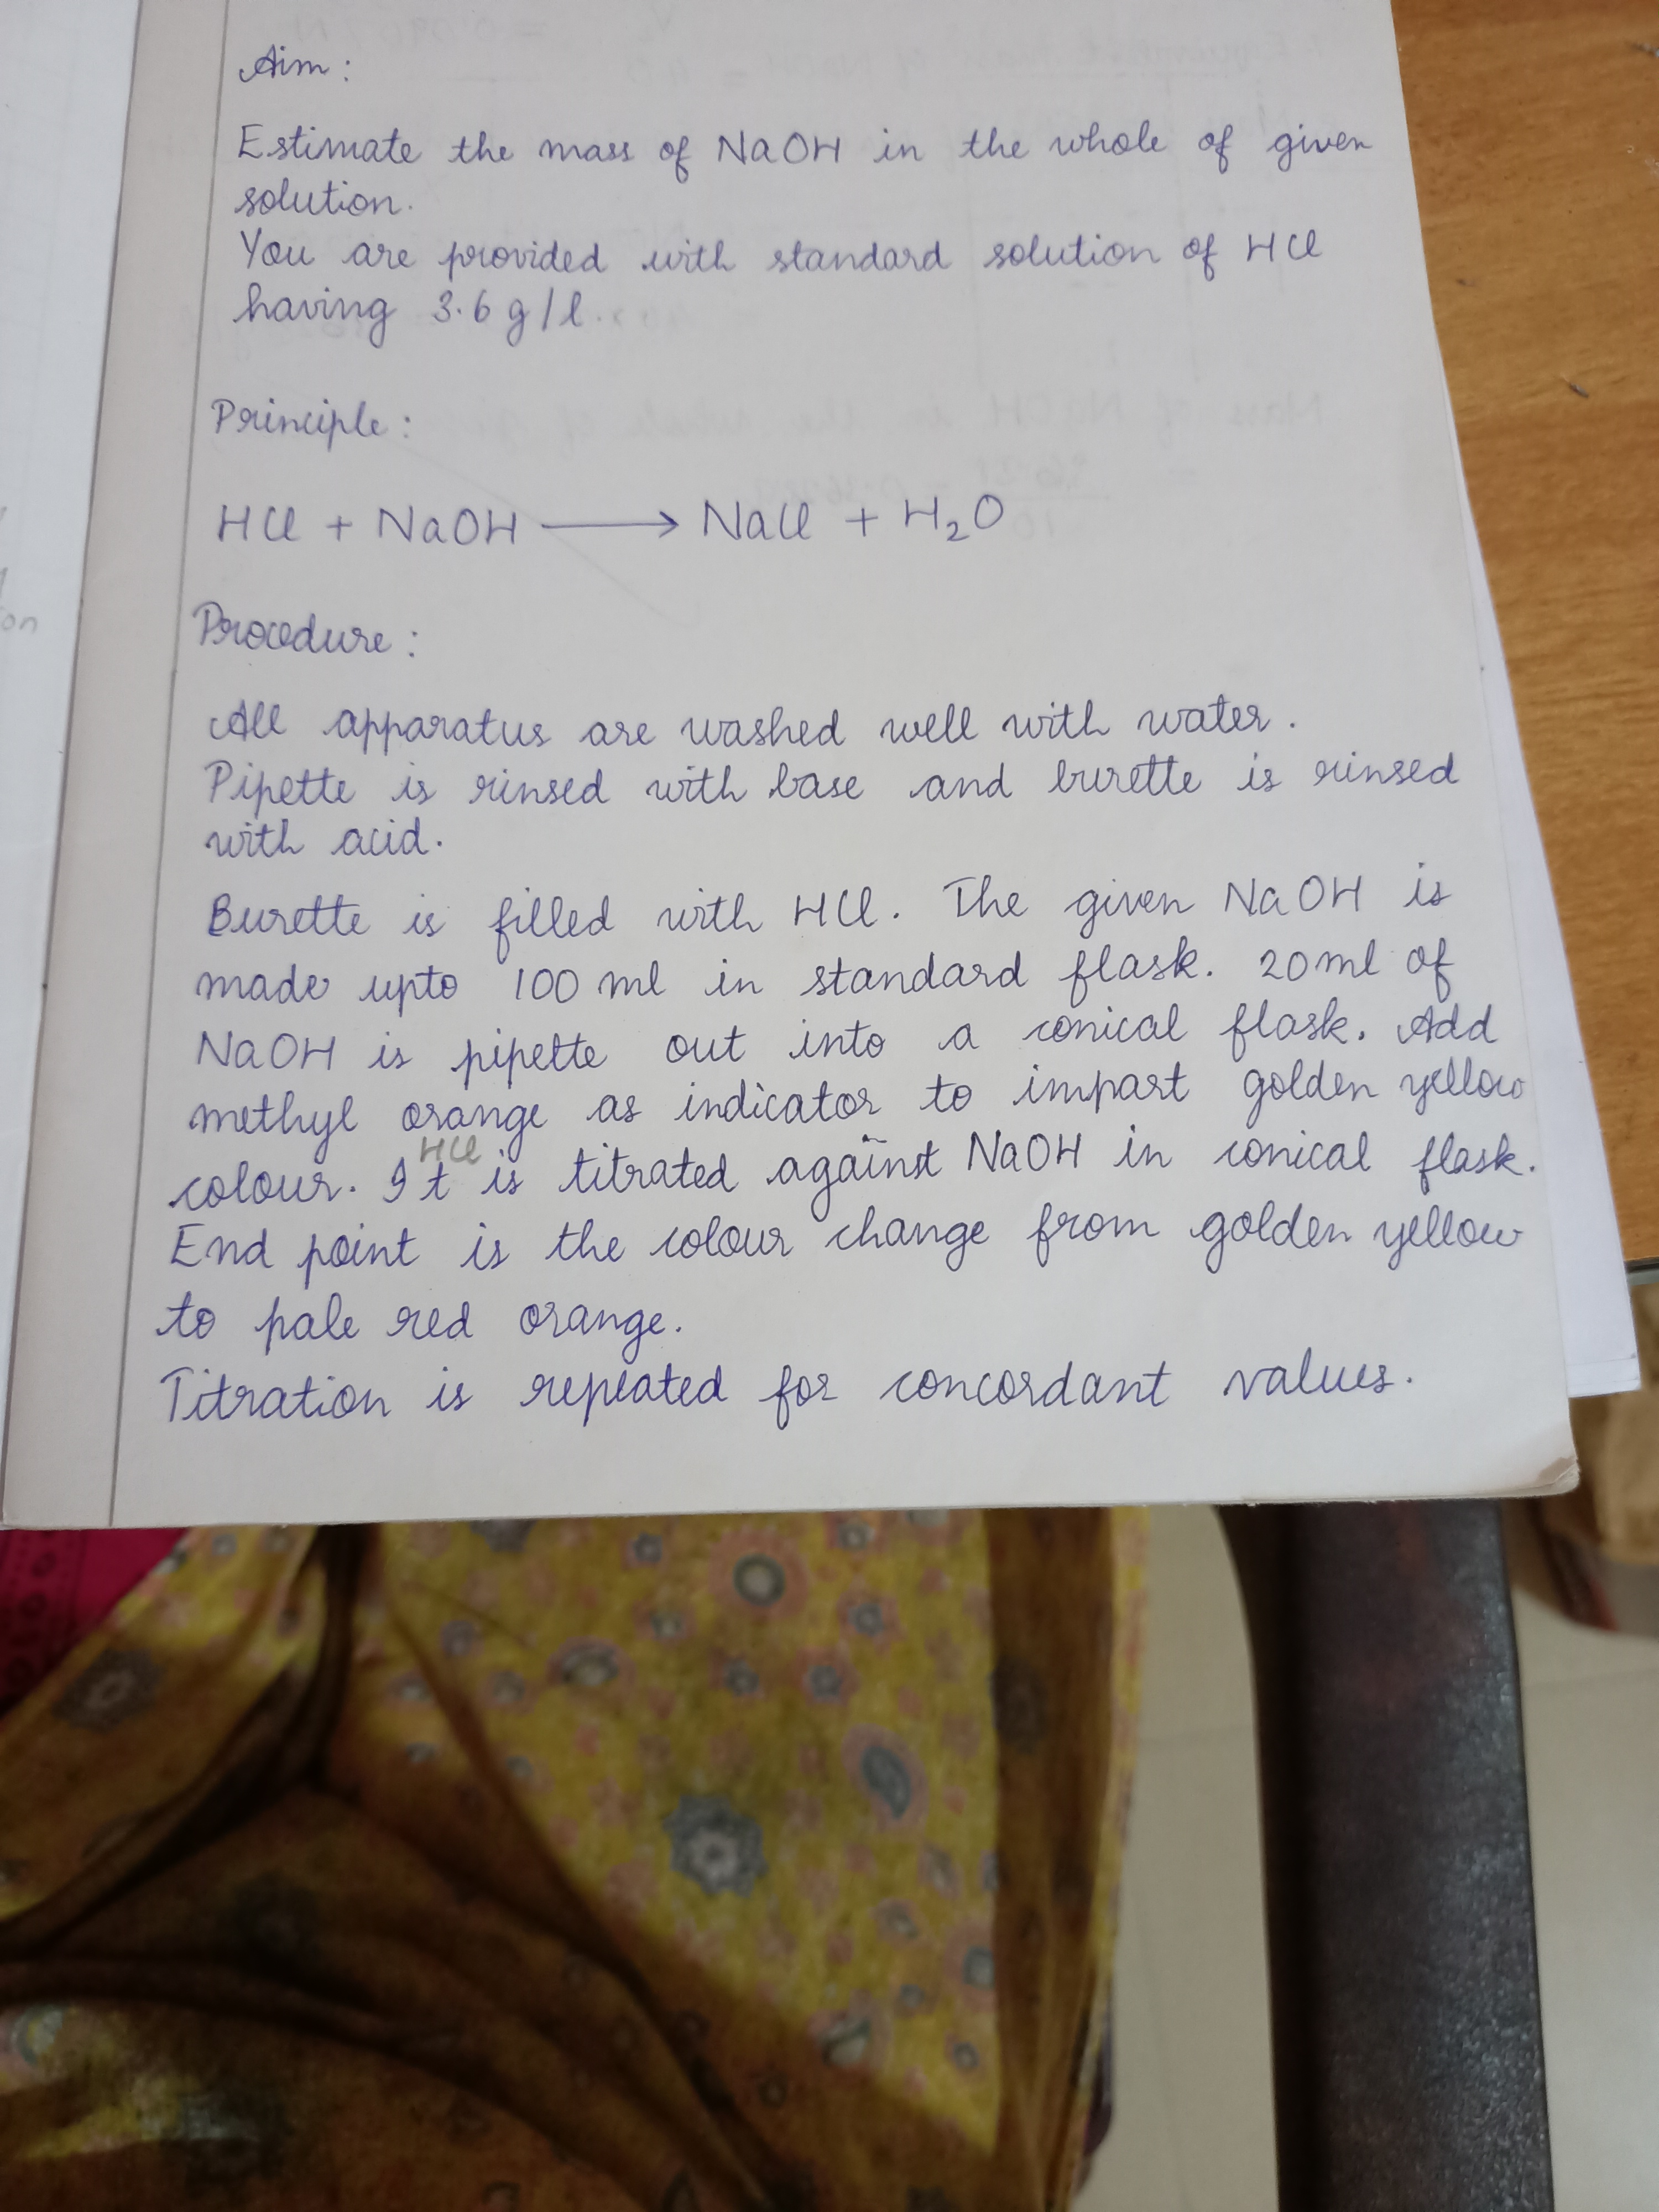 Aim :
Estimate the mass of NaOH in the whole of given
solution.
You are provided with standard solution of HCl
having 3.6 g/l.
Principle :
HCl + NaOH ⟶ NaCl + H₂O
Procedure :
All apparatus are washed well with water.
Pipette is rinsed with base and burette is rinsed
with acid.
Burette is filled with HCl. The given NaOH is
made upto 100 ml in standard flask. 20 ml of
NaOH is pipette out into a conical flask. Add
methyl orange as indicator to impart golden yellow
HCl
colour. It is titrated against NaOH in conical flask.
End point is the colour change from golden yellow
to pale red orange.
Titration is repeated for concordant values.
on